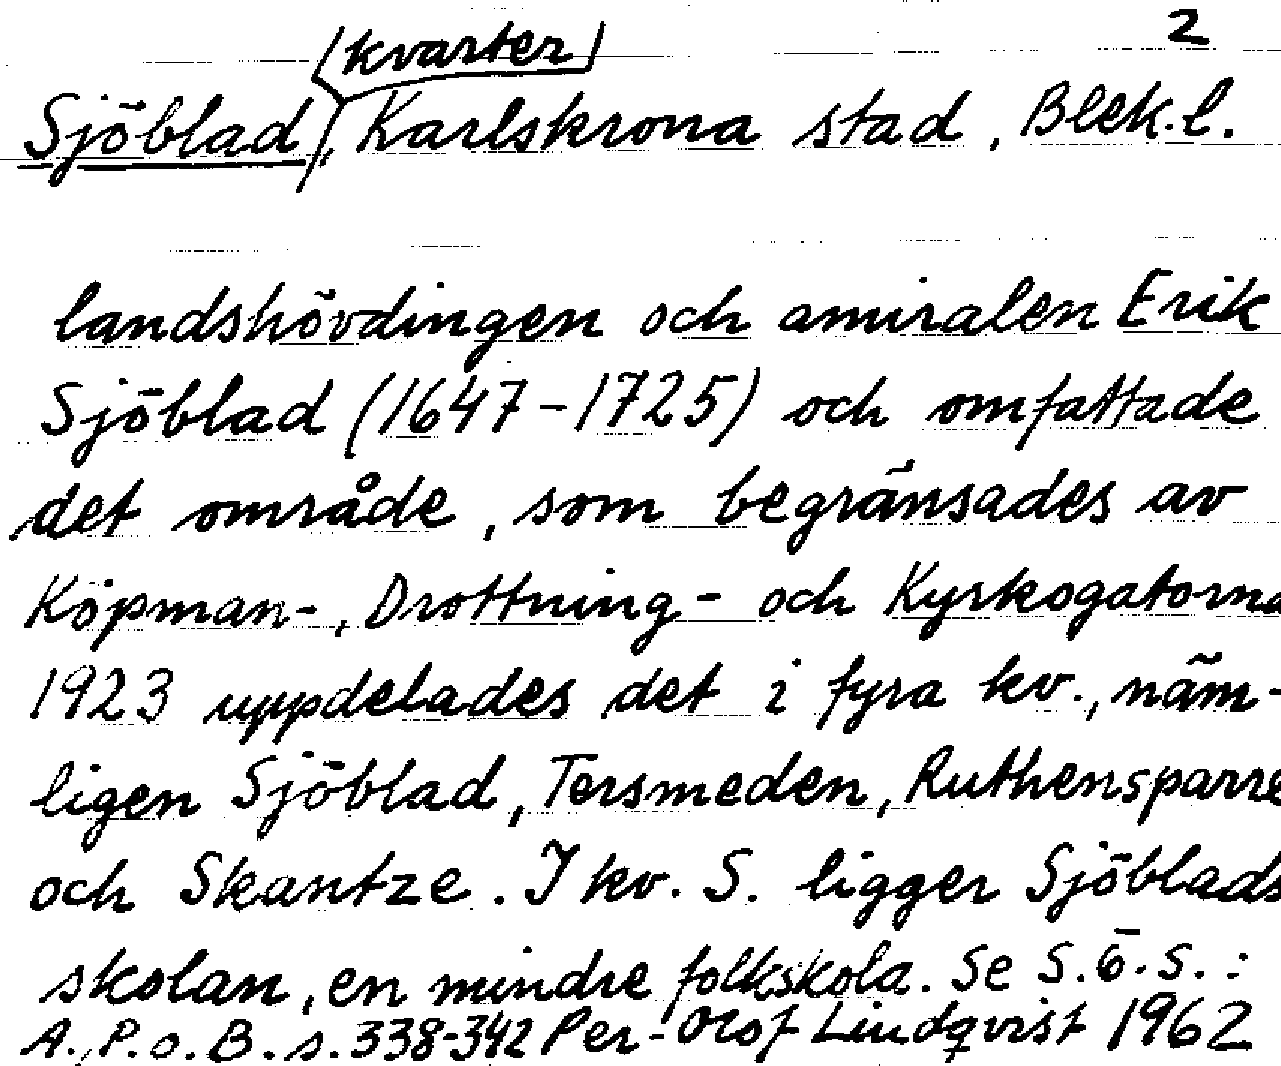 2
(kvarter)
Sjöblad, Karlskrona stad, Blek.l.
landshövdingen och amiralen Erik
Sjöblad (1647-1725) och omfattade
det område, som begränsades av
Köpman-, Drottning- och Kyrkogatorna
1923 uppdelades det i fyra kv., näm-
ligen Sjöblad, Tersmeden, Ruthensparre
och Skantze. I kv. S. ligger Sjöblads
skolan, en mindre folkskola. Se S.ö.S.:
A.,P.o.B.s.338-342 Per-Olof Lindqvist 1962